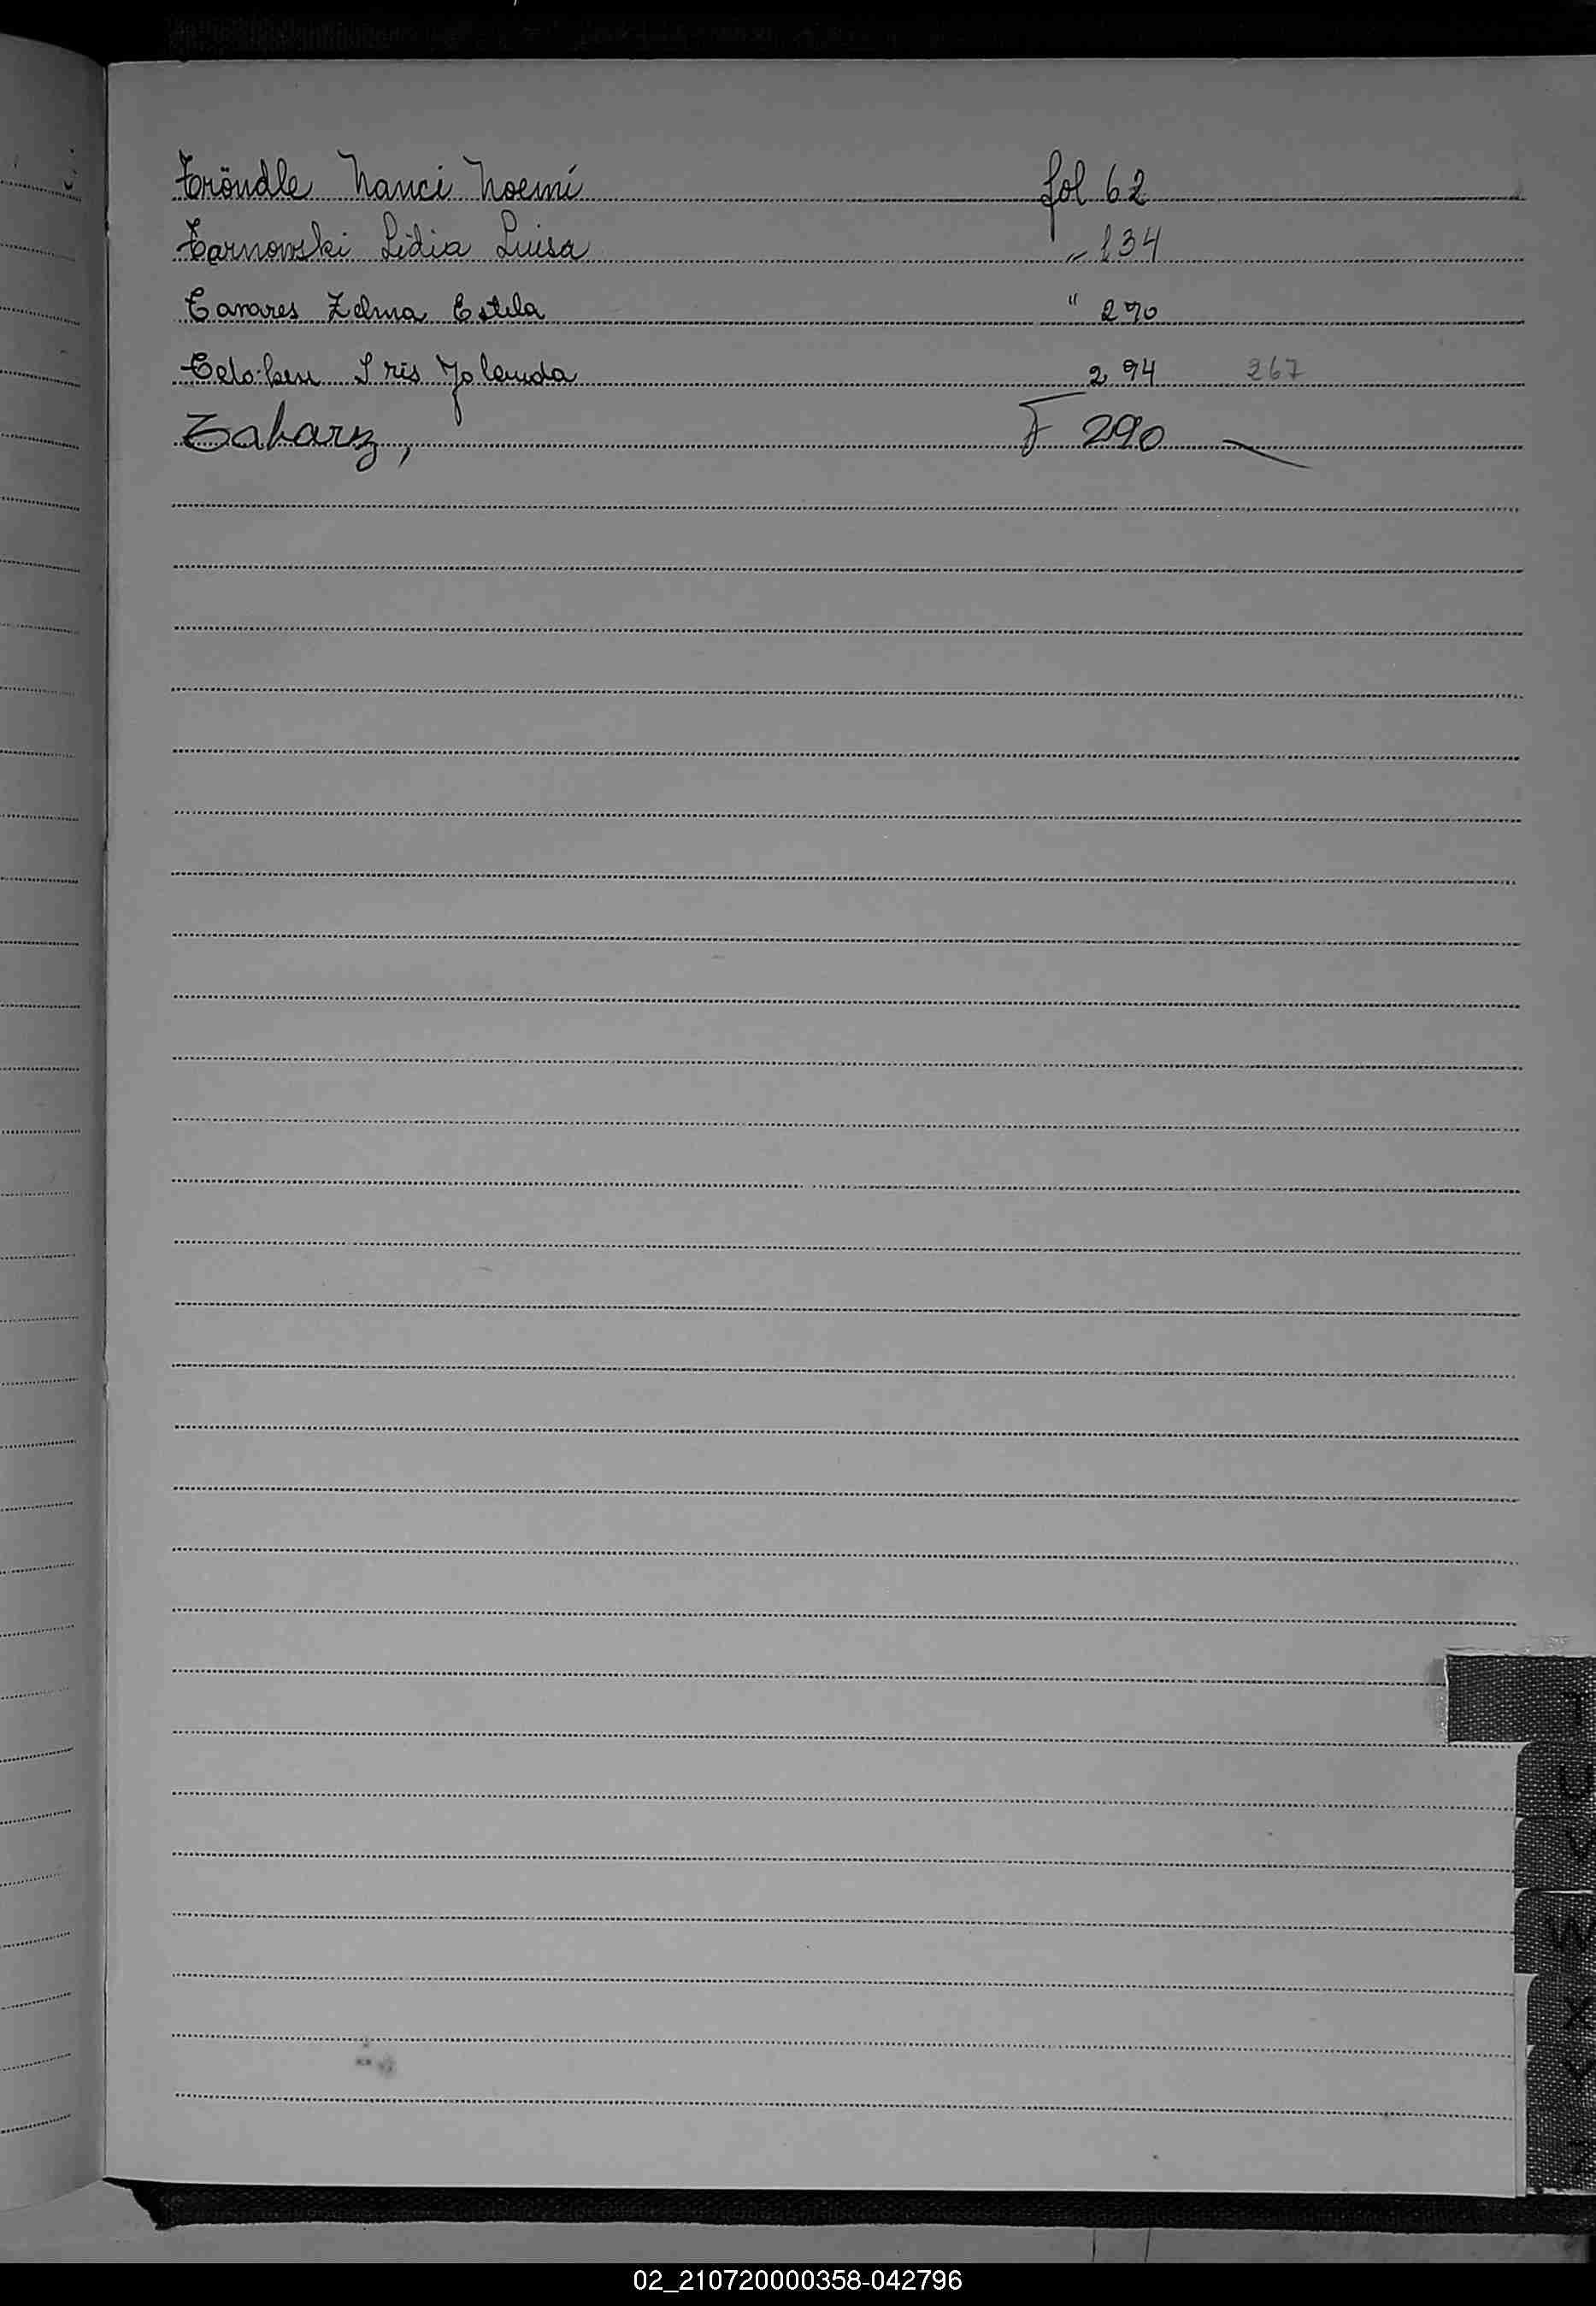 Tröndle Nanci Noemí fol 62
Tarnowski Lidia Luisa " 134
Tavares Zelma Estela " 270
Iris Yolanda 294 267
Tabarz, F 290
T
U
V
W
X
Y
Z
02_210720000358-042796